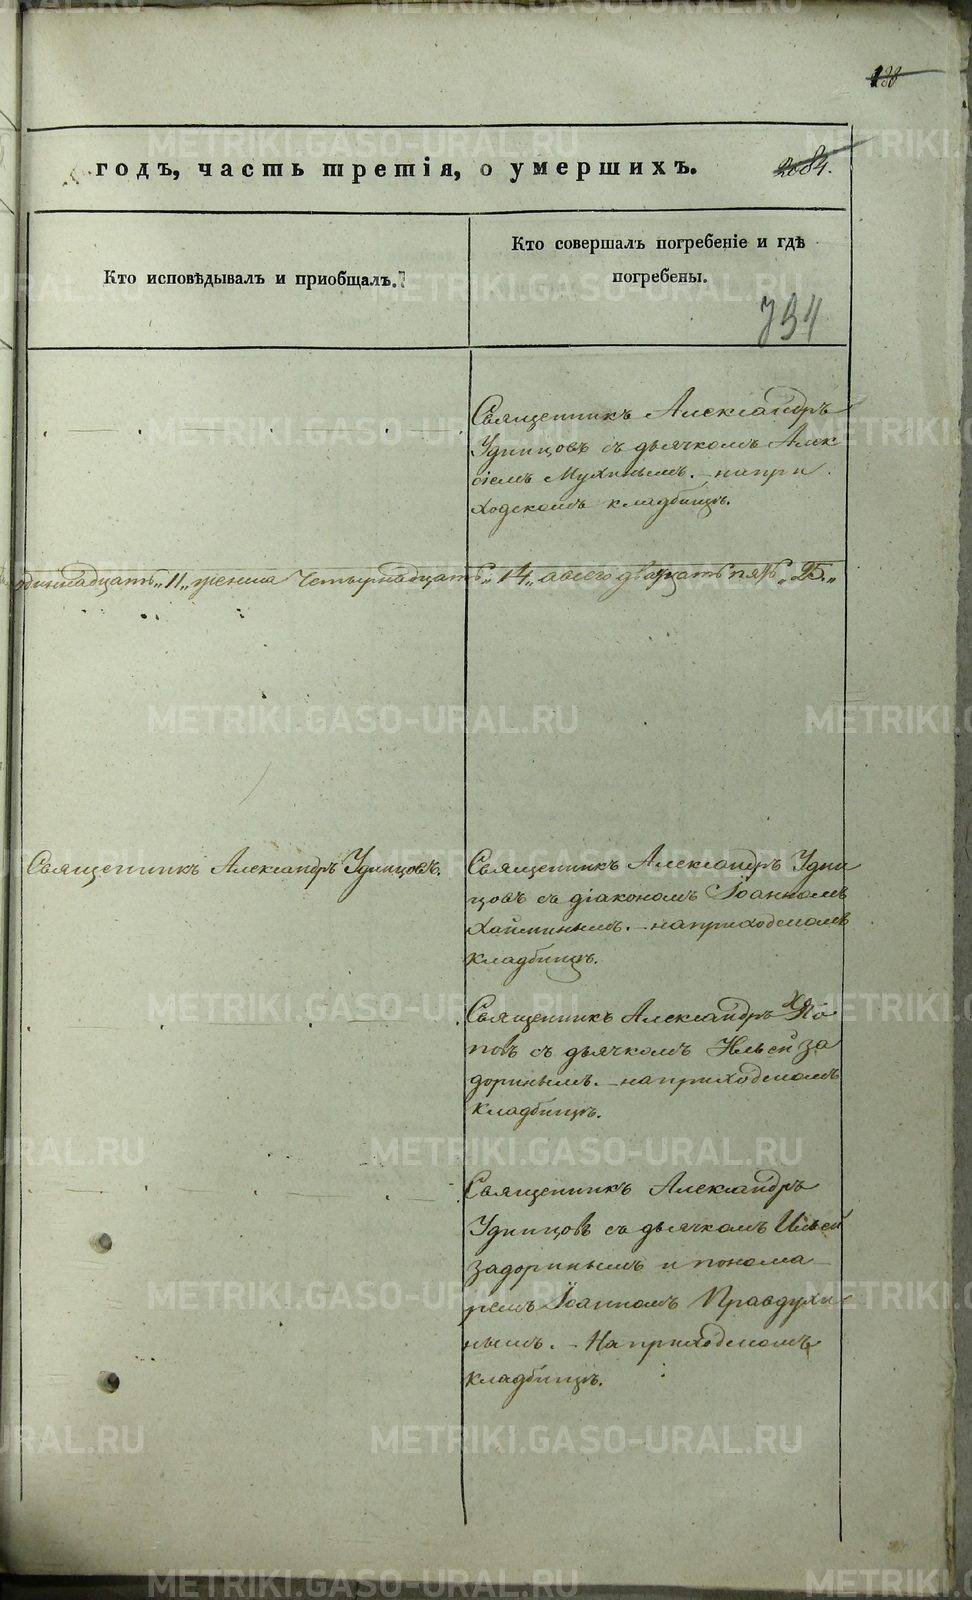 годъ, часть третія, о умершихъ.
2084.
Кто исповѣдывалъ и пріобщалъ.
Кто совершалъ погребеніе и гдѣ
погребены.
794
Священникъ Александръ
Удинцовъ съ дьячкомъ Алек
сіемъ Мухинымъ. - на при
ходскомъ кладбищѣ.
одиннадцать „11„ женска четырнадцать „14„ а всего двадцать пять „25.„
Священникъ Александръ Удинцовъ.
Священникъ Александръ Удин
цовъ съ діакономъ Іоанномъ
Хайминымъ. - на приходскомъ
кладбищѣ.
Священникъ Александръ По
повъ съ дьячкомъ Ильей За
доринымъ. - на приходскомъ
кладбищѣ.
Священникъ Александръ
Удинцовъ съ дьячкомъ Ильей
Задоринымъ и понома
ремъ Іоанномъ Правдухи
нымъ. - На приходскомъ
кладбищѣ.
METRIKI.GASO-URAL.RU